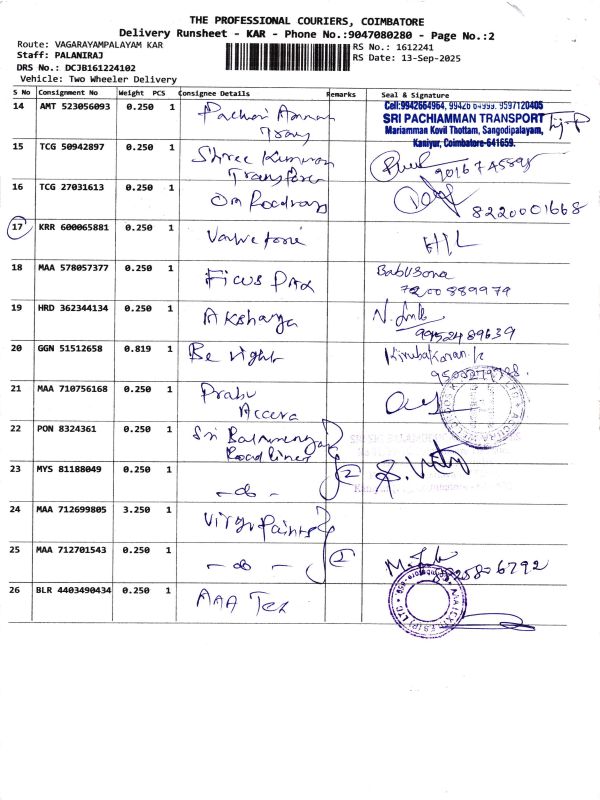 THE PROFESSIONAL COURIERS, COIMBATORE
Delivery Runsheet - KAR - Phone No.:9047080280 - Page No.:2
Route: VAGARAYAMPALAYAM KAR
RS No.: 1612241
Staff: PALANIRAJ
RS Date: 13-Sep-2025
DRS No.: DCJB161224102
Vehicle: Two Wheeler Delivery
S No Consignment No Weight PCS Consignee Details Remarks Seal & Signature
Cell:9942664964, 99426 64999. 9597120405
14 AMT 523056093 0.250 1
SRI PACHIAMMAN TRANSPORT
Mariamman Kovil Thottam, Sangodipalayam,
Kaniyur, Coimbatore-641659.
15 TCG 50942897 0.250 1 Shree Kumaran
Transport
16 TCG 27031613 0.250 1 Om Roadways
8220001668
17 KRR 600065881 0.250 1
H/L
18 MAA 578057377 0.250 1 Ficus Pax
Babu Sona
7200889979
19 HRD 362344134 0.250 1 Akshaya
9952489639
20 GGN 51512658 0.819 1 Be right
Kirubakaran.k
21 MAA 710756168 0.250 1 Prabu
22 PON 8324361 0.250 1 Sri
Roadlines
23 MYS 81188049 0.250 1 - do - 2
24 MAA 712699805 3.250 1 Virgo Paints
25 MAA 712701543 0.250 1 - do - 2
26 BLR 4403490434 0.250 1 AAA Tex